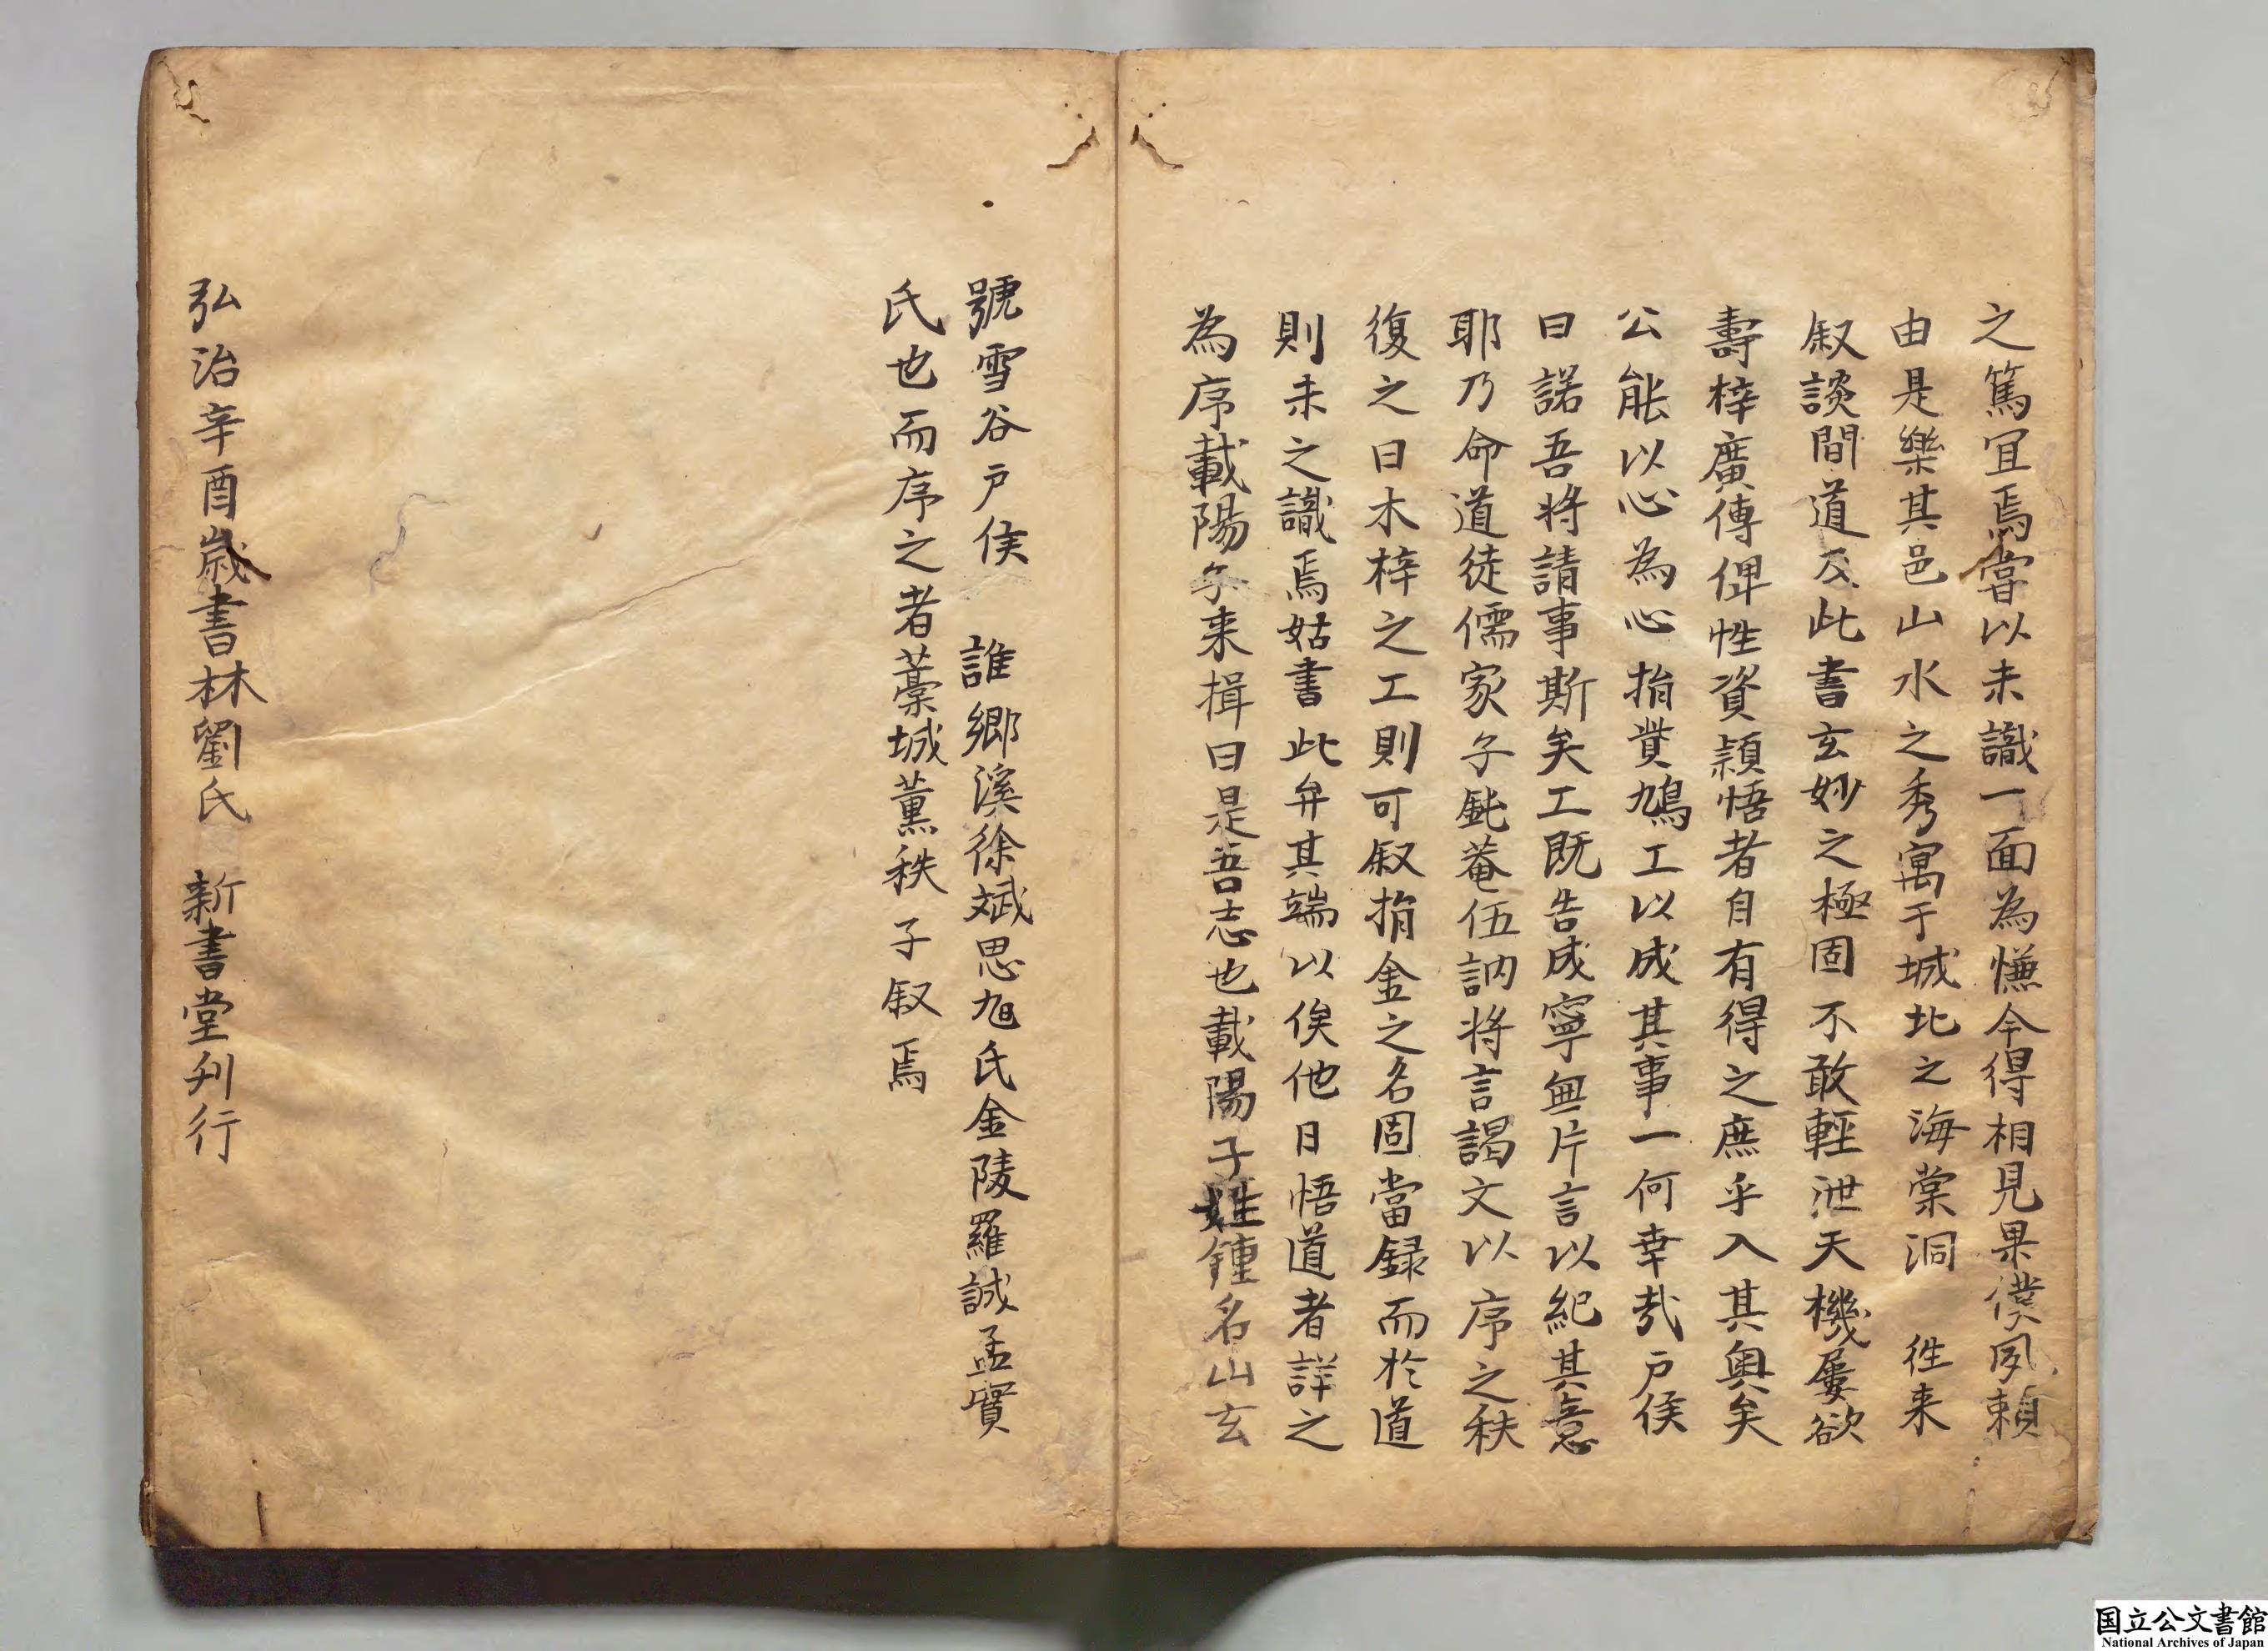 之篤冝焉嘗以未識一面為慊今得相見果僕夙頼
由是樂其邑山水之秀寓于城北之海棠洞　徃来
叙談間道及此書玄妙之極固不敢輕泄天機屢欲
壽梓廣傳俾性資穎悟者自有得之庶乎入其奥矣
公能以心為心捐貲鳩工以成其事一何幸㢤户侯
曰諾吾将請事斯矣工既告成寧無片言以紀其意
耶乃命道徒儒家子鈍菴伍訥将言謁文以序之秩
復之曰木梓之工則可叙捐金之名固當録而於道
則未之識焉姑書此弁其端以俟他日悟道者詳之
為序載陽子来揖曰是吾志也載陽子姓鍾名山玄
號雪谷户侯　誰鄉溪徐斌思旭氏金陵羅誠孟實
氏也而序之者藁城薫秩子叙焉
弘治辛酉歲書林劉氏　新書堂刋行
国立公文書館
National Archives of Japan